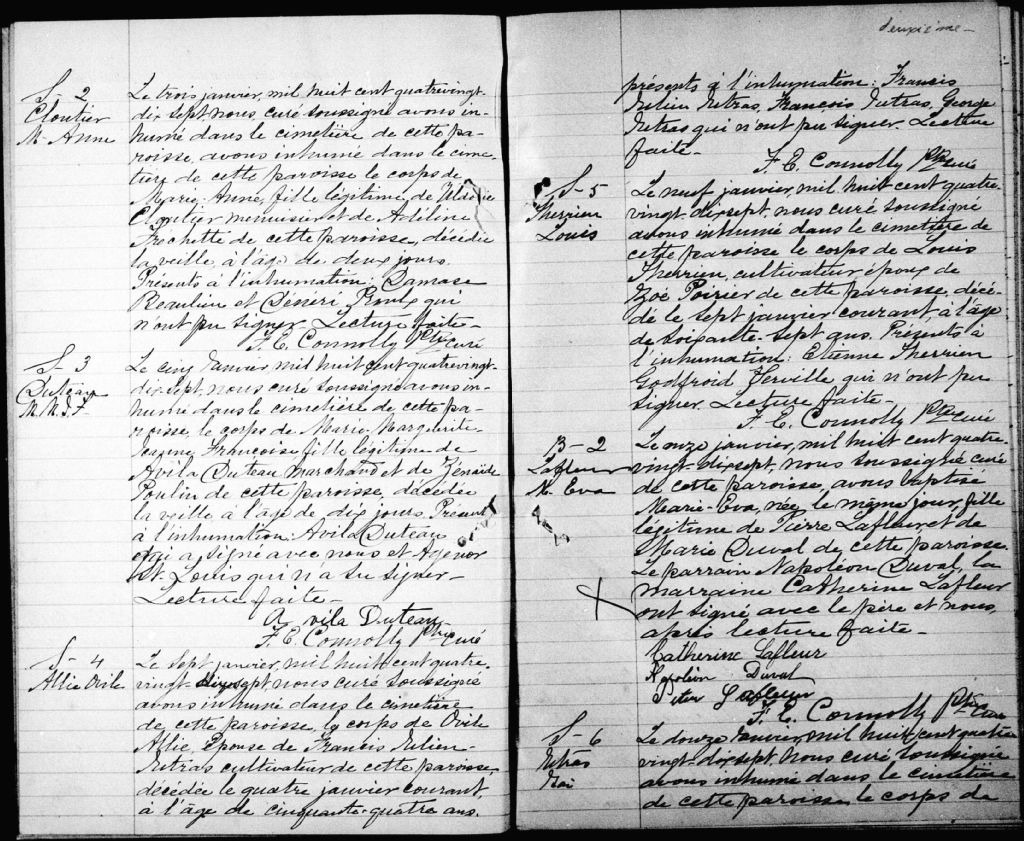 S-2
Cloutier
M-Anne
Le trois janvier, mil huit cent quatrevingt-
dix sept nous, curé soussigné avons in-
humé dans le cimetière de cette pa-
roisse, avons inhumé dans le cime-
tière de cette paroisse le corps de
Marie-Anne, fille légitime de
Cloutier menuisier et de Adéline
Fréchette de cette paroisse, décédée
la veille, à l'âge de deux jours.
Présents à l'inhumation; Damase
Beaulieu et Désiré Proulx qui
n'ont pu signer. Lecture faite-
F. E. Connolly Ptre curé
S-3
Duteau
M. M. J. F.
Le cinq Janvier mil huit cent quatrevingt-
dix-sept, nous, curé soussigné avons in-
humé dans le cimetière de cette pa-
roisse, le corps de Marie-Marguerite-
Françoise, fille légitime de
Avila Duteau marchand et de Zénaïde
Poulin de cette paroisse, décédée
la veille à l'âge de dix jours. Présent
à l'inhumation, Avila Duteau
qui a signé avec nous et Agenor
St. Louis qui n'a su signer-
Lecture faite-
Avila Duteau
F. E. Connolly Ptre curé
S-4
Allie Ovile
Le sept janvier, mil huit cent quatre-
vingt-dix-sept nous curé soussigné
avons inhumé dans le cimetière
de cette paroisse, le corps de Ovile
Allie, Épouse de Francis Julien-
Nétras cultivateur de cette paroisse,
décédée le quatre janvier courant,
à l'âge de cinquante-quatre ans.
deuxième-
présents à l'inhumation; Francis
Julien Nétras, François Nétras, George
Nétras qui n'ont pu signer. Lecture
faite-
F. E. Connolly Ptre curé
S-5
Therrien
Louis
Le neuf janvier, mil huit cent quatre-
vingt-dix-sept, nous curé soussigné
avons inhumé dans le cimetière de
cette paroisse le corps de Louis
Therrien, cultivateur époux de
Zoé Poirier de cette paroisse, décé-
dé le sept janvier courant à l'âge
de soixante-sept ans. Présents à
l'inhumation: Etienne Therrien
Godfroid Terville qui n'ont pu
signer. Lecture faite-
F. E. Connolly Ptre curé
B-2
Lafleur
M. Eva
Le onze janvier, mil huit cent quatre-
vingt-dix-sept, nous soussigné curé
de cette paroisse, avons baptisé
Marie-Eva, née, le même jour, fille
légitime de Pierre Lafleur et de
Marie Duval de cette paroisse.
Le parrain Napoléon Duval, la
marraine Catherine Lafleur
ont signé avec le père et nous,
après lecture faite-
Catherine Lafleur
Napoléon Duval
Peter Lafleur
F. E. Connolly Ptre Curé
S-6
Nétras
Le douze Janvier, mil huit cent quatre
vingt-dix-sept, nous curé, soussigné
avons inhumé dans le cimetière
de cette paroisse, le corps de